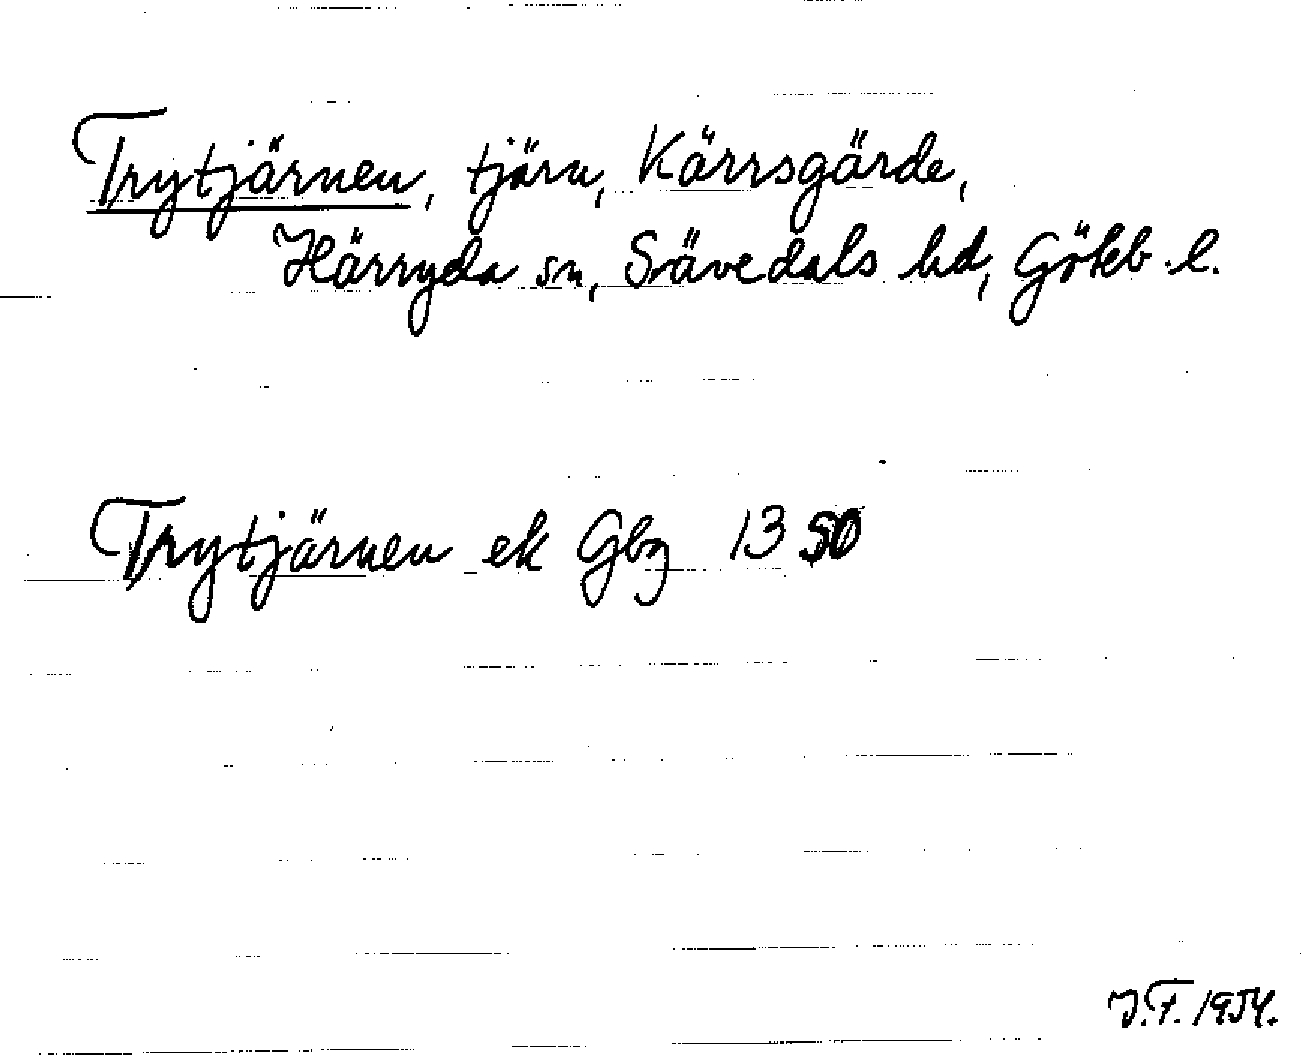 Trytjärnen, tjärn, Kärrsgärde,
Härryda sn, Sävedals hd, Göteb. l.
Trytjärnen ek Gbg 13 50
J.F. 1954.